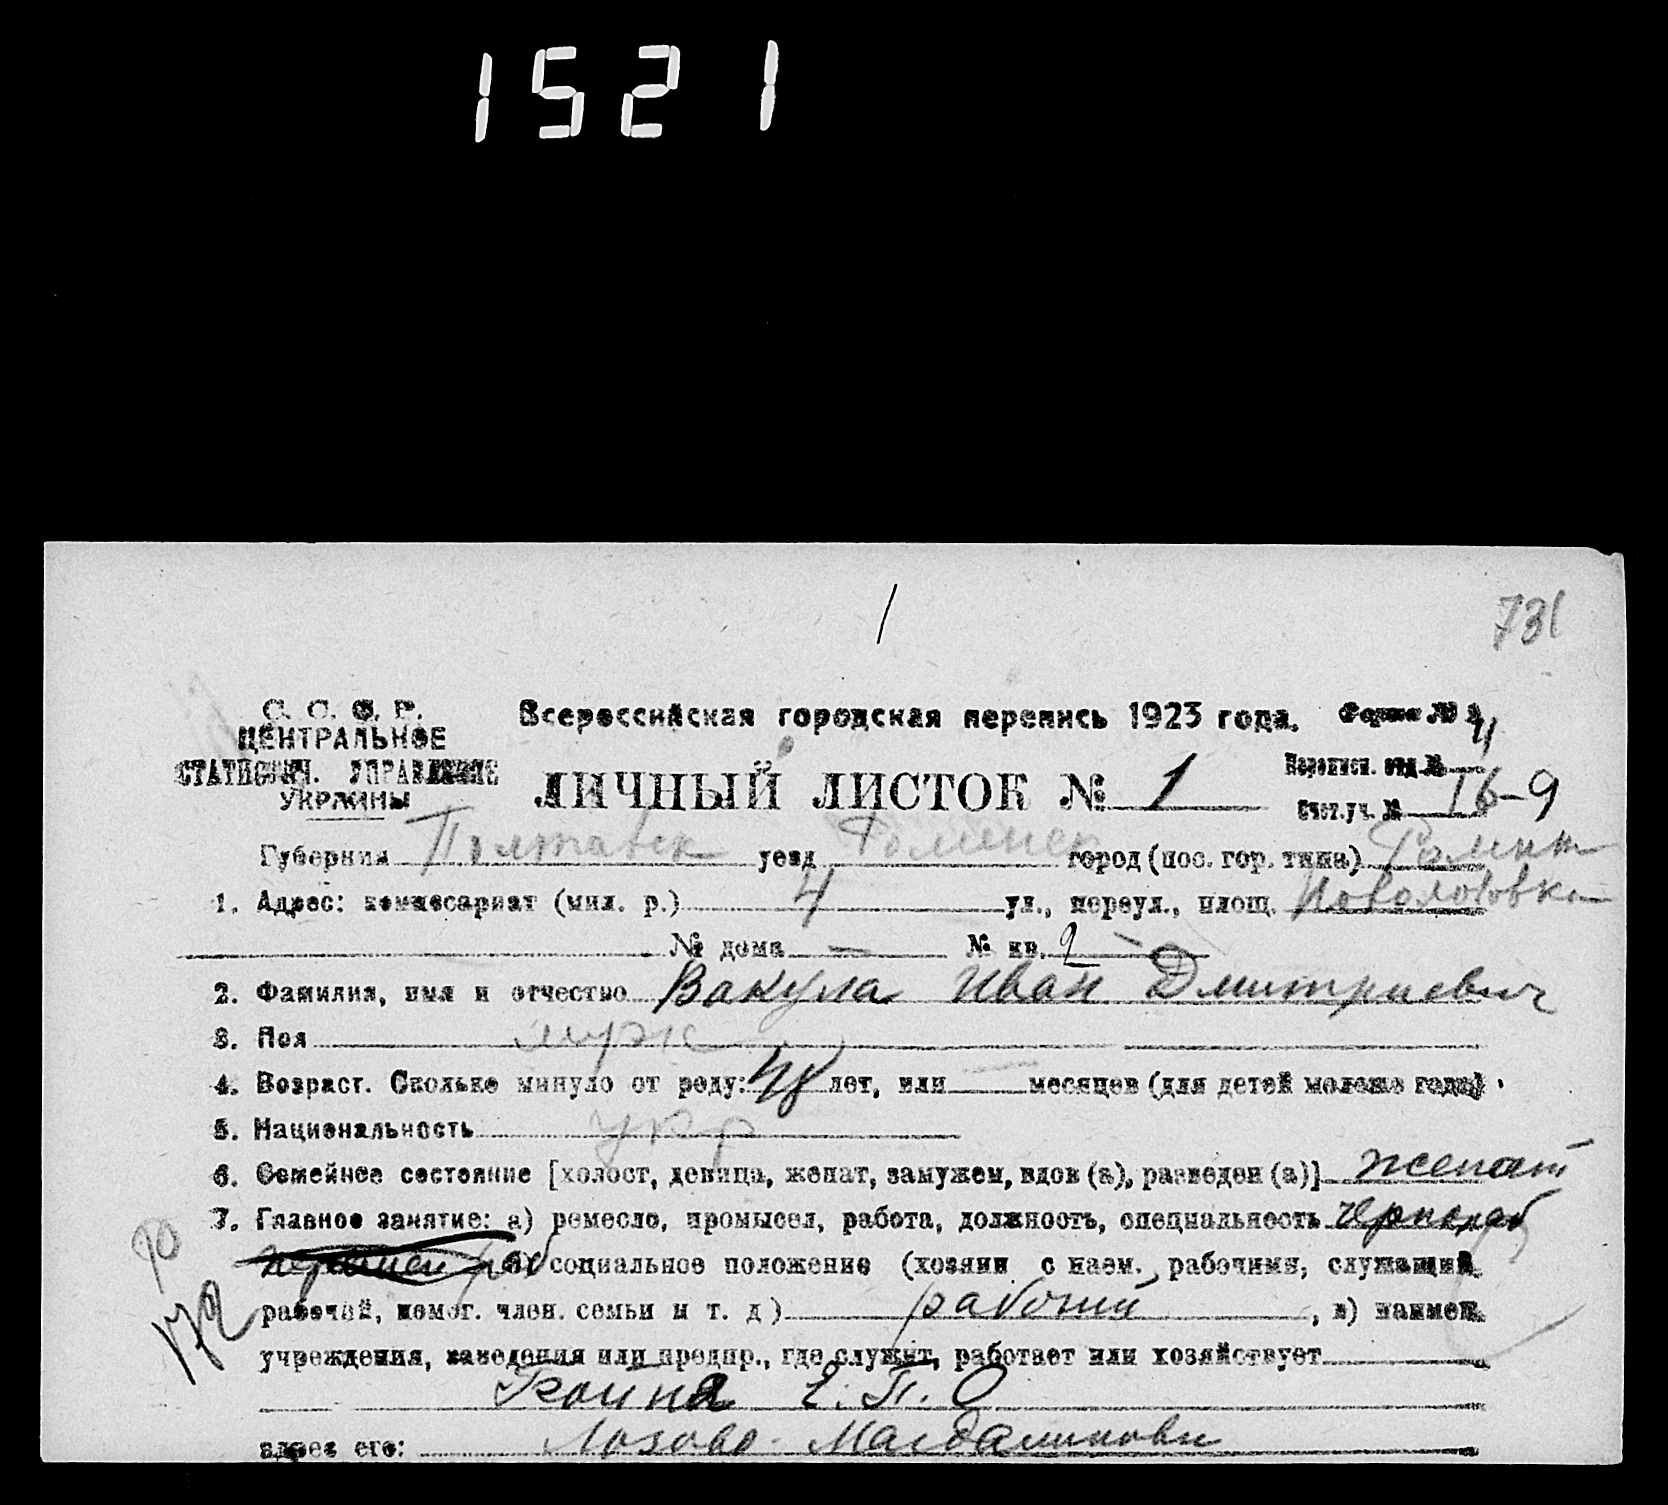 1521
/
731
С. С. С. Р.
ЦЕНТРАЛЬНОЕ
СТАТИСТИЧ. УПРАВЛЕНИЕ
УКРАИНЫ
Всероссийская городская перепись 1923 года. Форма № 4
ЛИЧНЫЙ ЛИСТОК № 1
Переписн. отд. №
Счет. уч. № 16-9
Губерния Полтавск уезд Роменск город (пос. гор. типа)
1. Адрес: комиссариат (мил. р.) 4 ул., переул., площ.
№ дома — № кв.
2. Фамилия, имя и отчество Вакула Иван Дмитриевич
3. Пол муж
4. Возраст. Сколько минуло от роду: 48 лет, или месяцев (для детей моложе года)
5. Национальность укр
6. Семейное состояние [холост, девица, женат, замужем, вдов (а), разведен (а)] женат
7. Главное занятие: а) ремесло, промысел, работа, должность, специальность чернораб
б) социальное положение (хозяин с наем. рабочими, служащий,
рабочий, помог. член. семьи и т. д) рабочий, в) наимен.
учреждения, заведения или предпр., где служит, работает или хозяйствует
Е. П. О
адрес его: Лозово